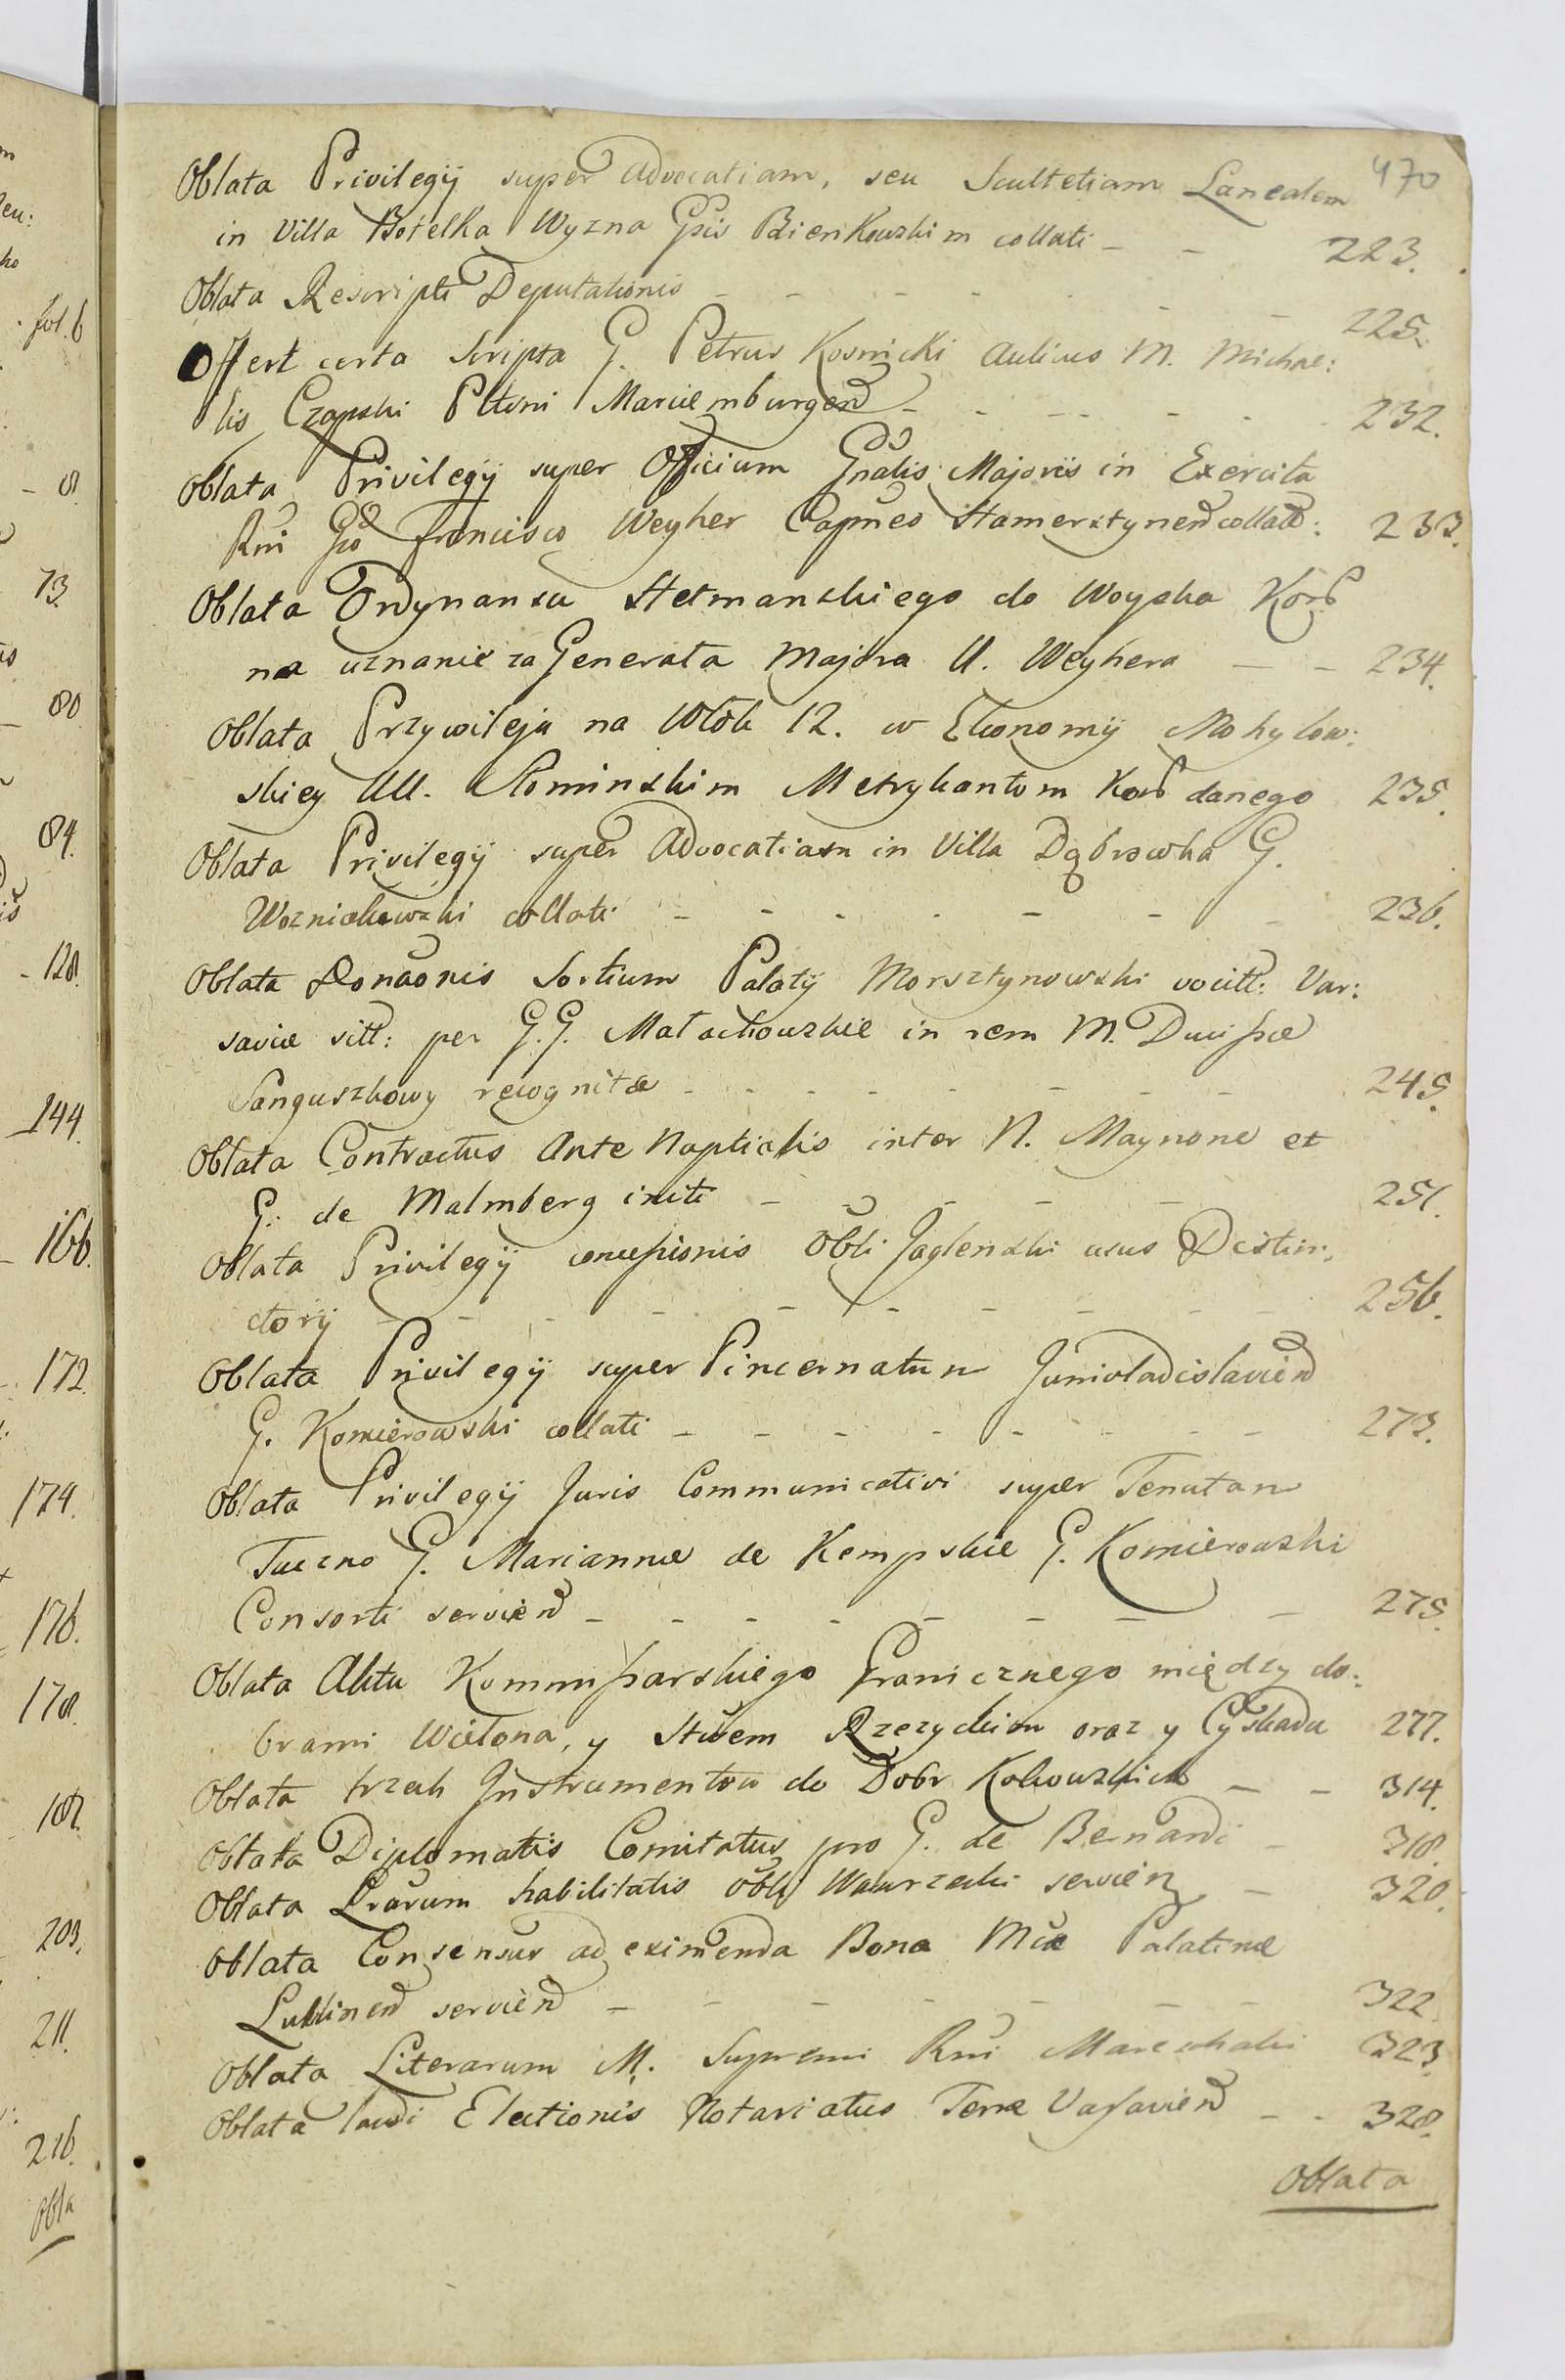 470
Oblata Privilegij super Advocatiam, seu Scultetiam Lanealem
in Villa Botelka Wyzna Gsis Bienkowskim collati - - 223.
Oblata Rescripti Deputationis - - - - 225.
Offert certa Scripta G. Petrus Kosnicki Aulicus M. Michae:
lis Czapski Pltoni Mariemburgen - - - - 232.
Oblata Privilegij super Officium Gnalis Majoris in Exercitu
Rni Gso Francisco Weyher Capneo Hamersztynen collatt: 233.
Oblata Ordynansu Hetmanskiego do Woyska Kor
na uznanie za Generała Majora U. Weyhera - - 234.
Oblata Przywileju na Włók 12. w Ekonomij Mohylow:
skiey UU. Słominskim Metrykantom Kor danego 235.
Oblata Privilegij super Advocatiam in Villa Dąbrowka G.
Wozniakowski collati - - - - - - 236.
Oblata Donaonis Sortium Palatij Morsztynowski vocitt: Var:
saviæ sitt: per G.G. Małachowskie in rem M. Ducissæ
Sanguszkowy recognitæ - - - - - - 245.
Oblata Contractus Ante Nuptialis inter N. Maynone et
G. de Malmberg initi - - - - - 251.
Oblata Privilegij concessionis Obli Jaglenski usus Distin:
ctorij - - - - - - - - 256.
Oblata Privilegij super Pincernatum Junivladislavien
G. Komierowski collati - - - - - - - 273.
Oblata Privilegij Juris Communicativi super Tenutam
Tuczno G. Mariannæ de Kempskie G. Komierowski
Consorti servien - - - - - - - 275.
Oblata Aktu Kommissarskiego Granicznego między do:
brami Wielona, y Stwem Rzezyckim oraz y 277.
Oblata trzech Jnstrumentow do Dobr Kokowskich - - 314.
Oblata Diplomatis Comitatus pro G. de Bernardi - 318.
Oblata Lrarum habilitatis Obli Wawrzecki servien - 320.
Oblata Consensus ad eximenda Bona Mcæ Palatinæ
Lublinen servien - - - - - - - 322.
Oblata Literarum M. Supremi Rni Mareschalci 323.
Oblata laudi Electionis Notariatus Terræ Varsavien - - 328.
Oblata
fol. 6
8.
73.
80
84.
128.
144.
166.
172.
174.
176.
178.
187.
203.
211.
216.
Obla